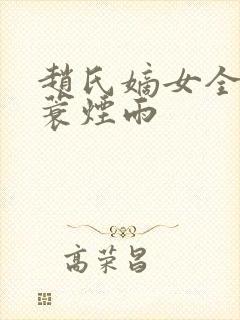 趙氏嫡女全
蓑煙雨
高荣昌